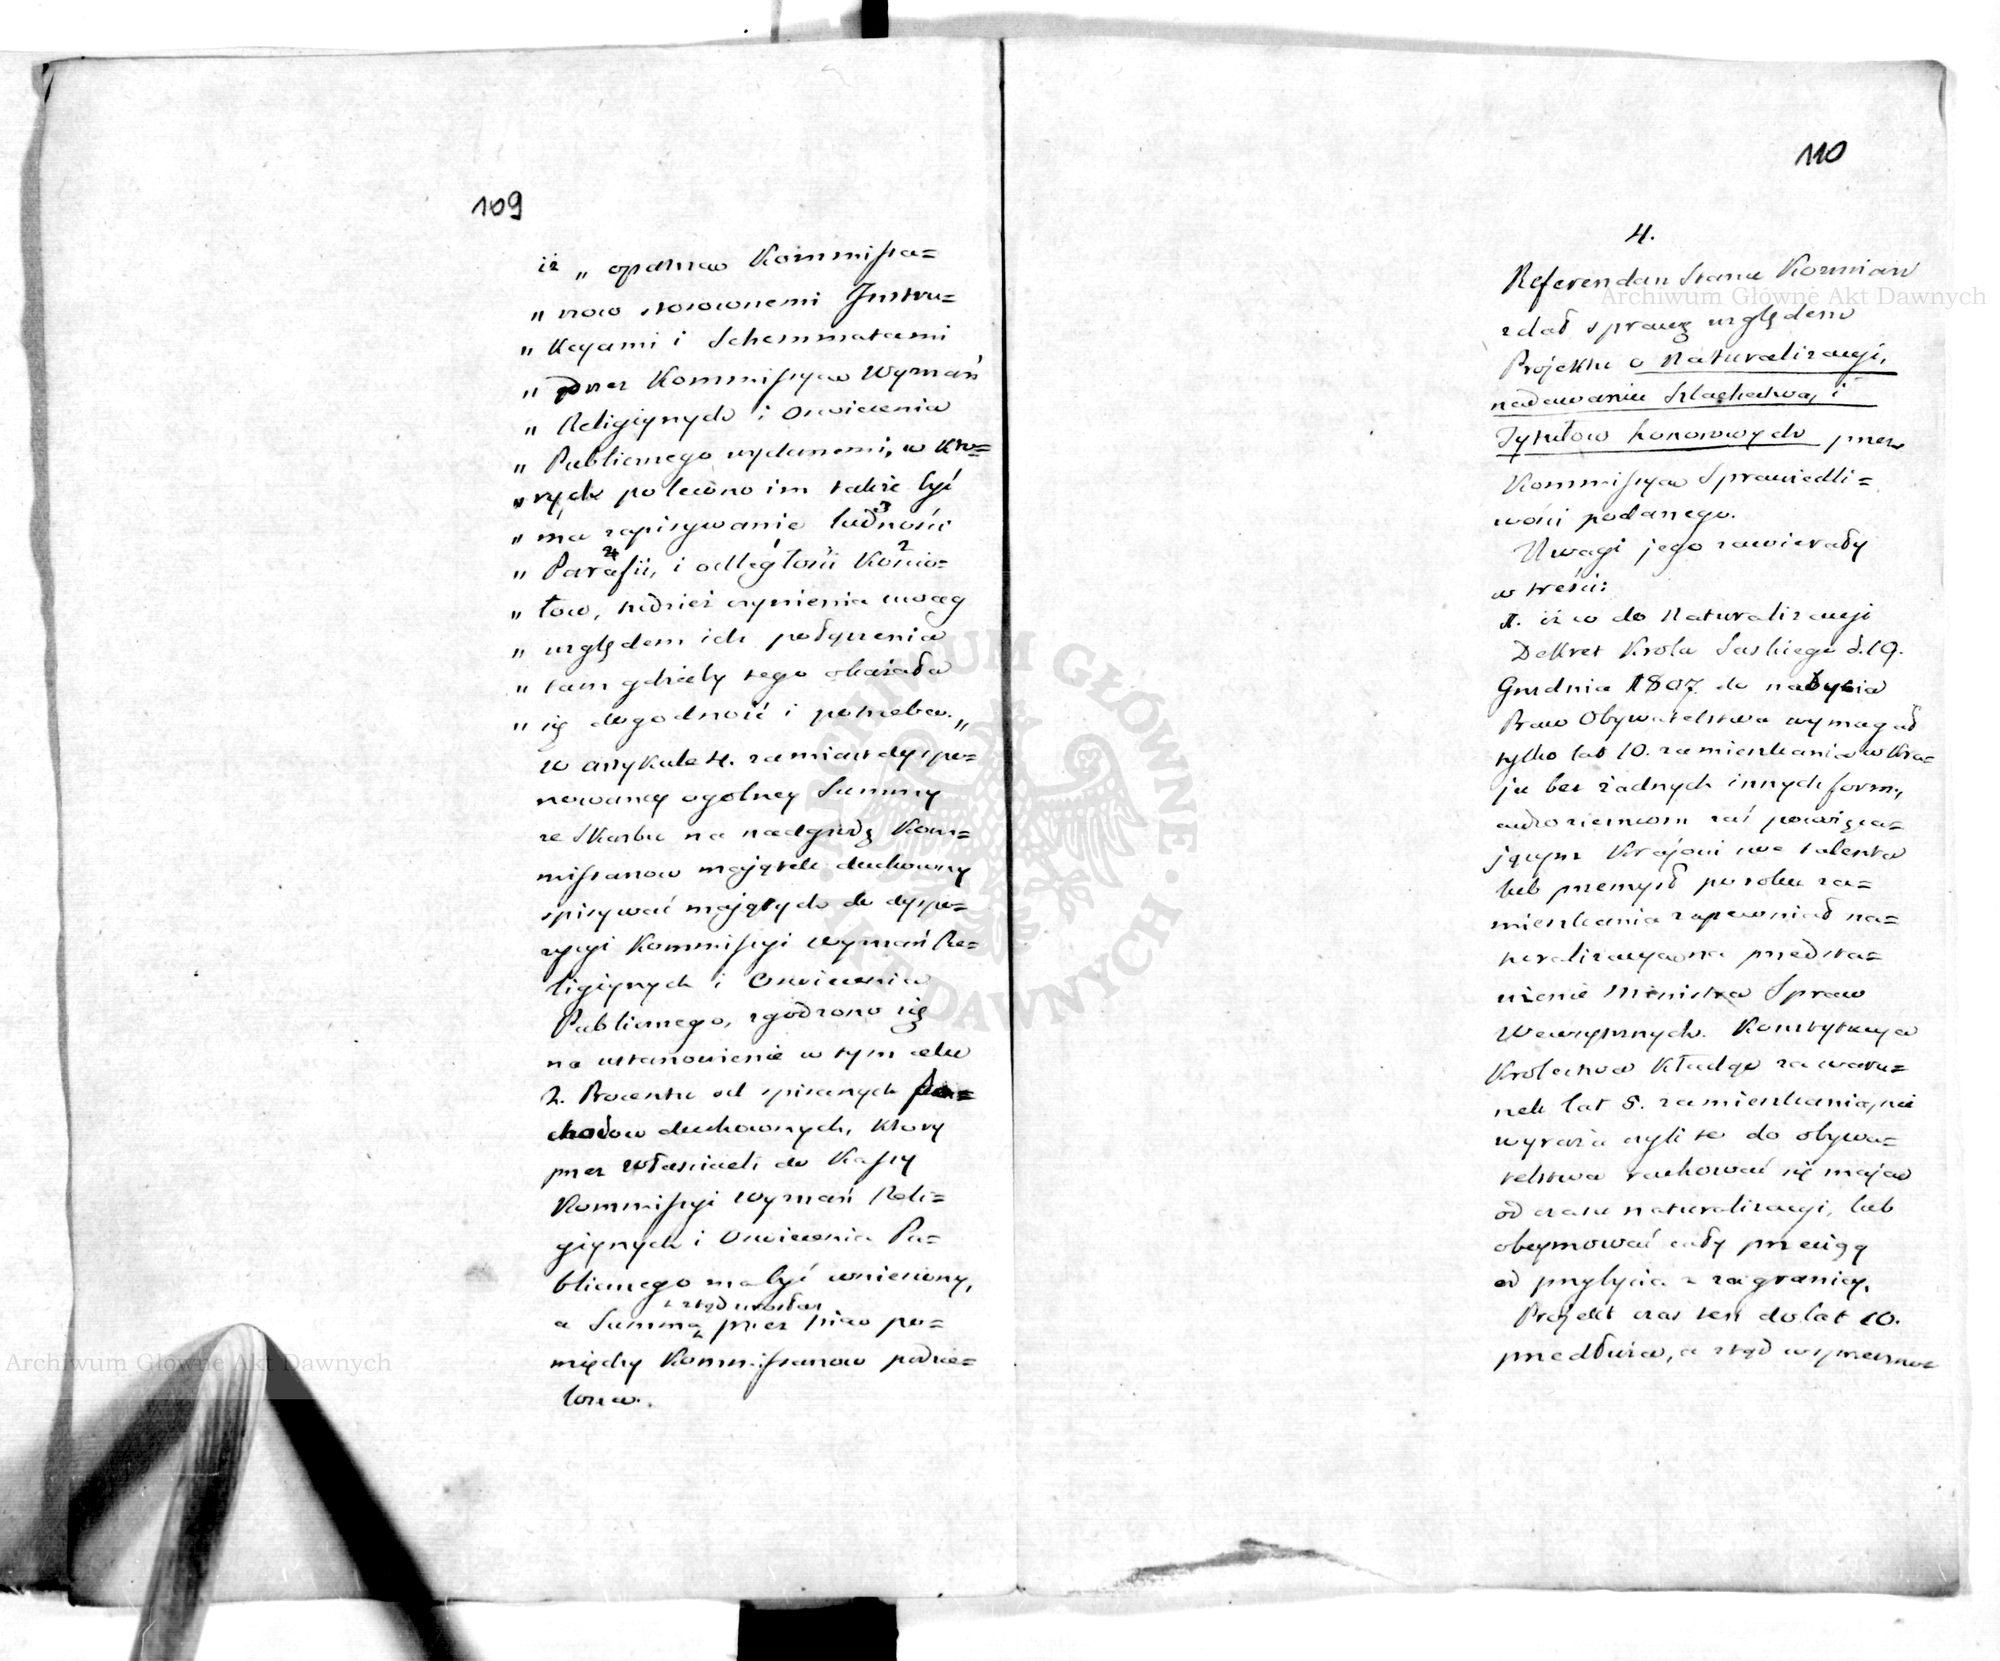 109
iż „ opatrzeo Kommissa=
„ rzow stosownemi Instru=
„ kcyami i Schemmatami
„ przez Kommissyą Wyznań
„ Religiynych i Oswiecenia
„ Publicznego wydanemi, w któ=
„ rych polecono im także być
„ ma zapisywanie ludności
„ Parafii, i odległości Kościo=
„ łow, tudzież czynienia uwag
„ względem ich połączenia
„ tam gdzieby tego okazała
„ się dogodność i potrzeba.„
w artykule 4. zamiast dyspo=
nowaney ogolney Summy
ze Skarbu na nadgrodę Kom=
missarzow majątek duchowny
spisywać mających do dyspo=
zycyi Kommissyi Wyznań Re=
ligiynych i Oswiecenia
Publicznego, zgodzono się
na ustanowienie w tym celu
2. Procentu od spisanych do=
chodow duchownych, ktory
przez właścicieli do Kassy
Kommissyi Wyznań Reli=
giynych i Oswiecenia Pu=
blicznego ma być wniesiony,
z tąd urosła
a Summa przez nią po=
między Kommissarzow podzie=
lona.
110
4.
Referendarz Stanu Kozmian
zdał sprawę względem
Projektu o Naturalizacyi,
nadawaniu Szlachectwa, i
Tytułow honorowych przez
Kommissyą Sprawiedli=
wości podanego.
Uwagi jego zawierały
w treści:
1. iż co do Naturalizacyi
Dekret Krola Saskiego d. 19.
Grudnia 1807. do nabycia
Praw Obywatelstwa wymagał
tylko lat 10. zamieszkania w Kra=
ju bez żadnych innych form,
cudzoziemcom zaś poswięca=
jącym Krajowi swe talenta
lub przemysł po roku za=
mieszkania zapewniał na=
turalizacyą na przedsta=
wienie Ministra Spraw
Wewnętrznych. Konstytucya
Krolestwa kładąc za waru=
nek lat 5. zamieszkania, nie
wyraża czyli te do obywa=
telstwa rachować się mają
od czasu naturalizacyi, lub
obeymować cały przeciąg
od przybycia z zagranicy.
Projekt czas ten do lat 10.
przedłuża, a ztąd w sprzeczno=